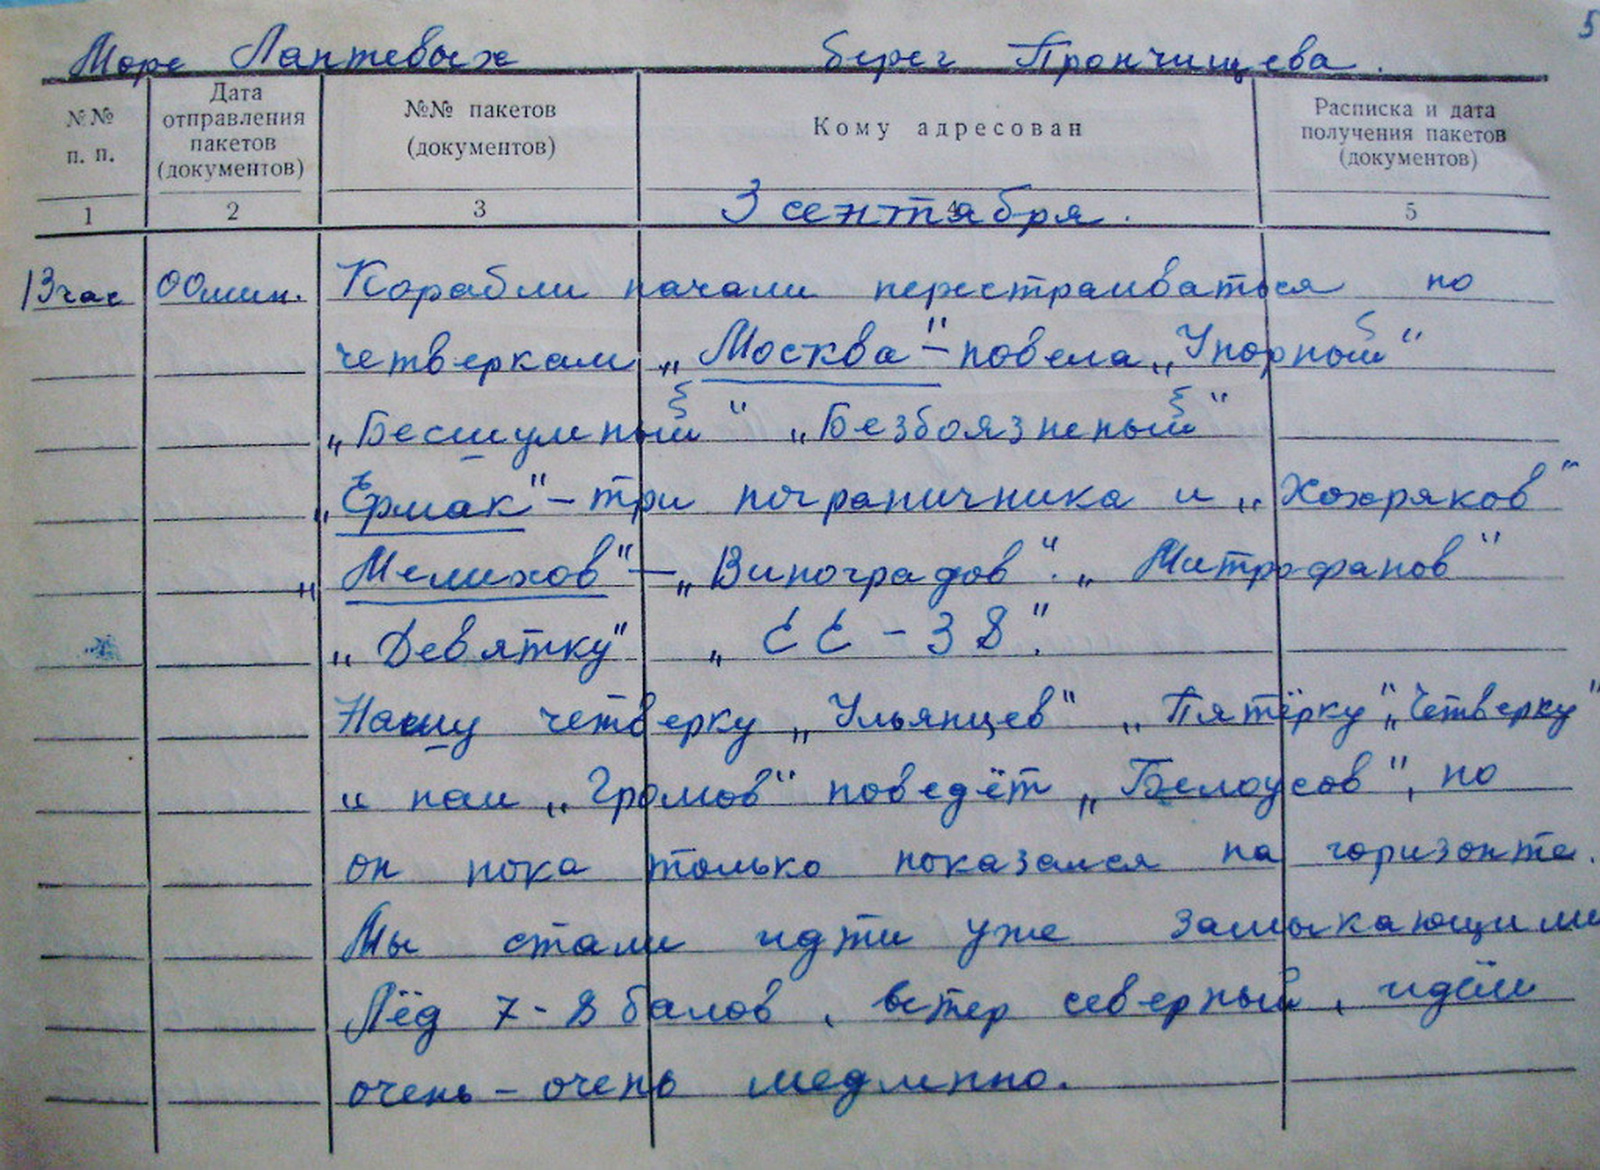 5
Море Лаптевых берег Прончищева.
№№ п. п.
Дата отправления пакетов (документов)
№№ пакетов (документов)
Кому адресован
Расписка и дата получения пакетов (документов)
1 2 3 4 5
3 сентября.
13 час 00 мин. Корабли начали перестраиваться по
четверкам „Москва" – повела „Упорный"
„Бесшумный" „Безбоязненый"
„Ермак" – три пограничника и „Хохряков"
„Мелихов" – „Виноградов". „Митрофанов"
„Девятку" „ЕЕ – 38".
Нашу четверку „Ульянцев" „Пятёрку", „Четверку"
и нам „Громов" поведёт „Белоусов", но
он пока только показался на горизонте.
Мы стали идти уже замыкающими
Лёд 7 - 8 балов, ветер северный, идём
очень – очень медлнно.